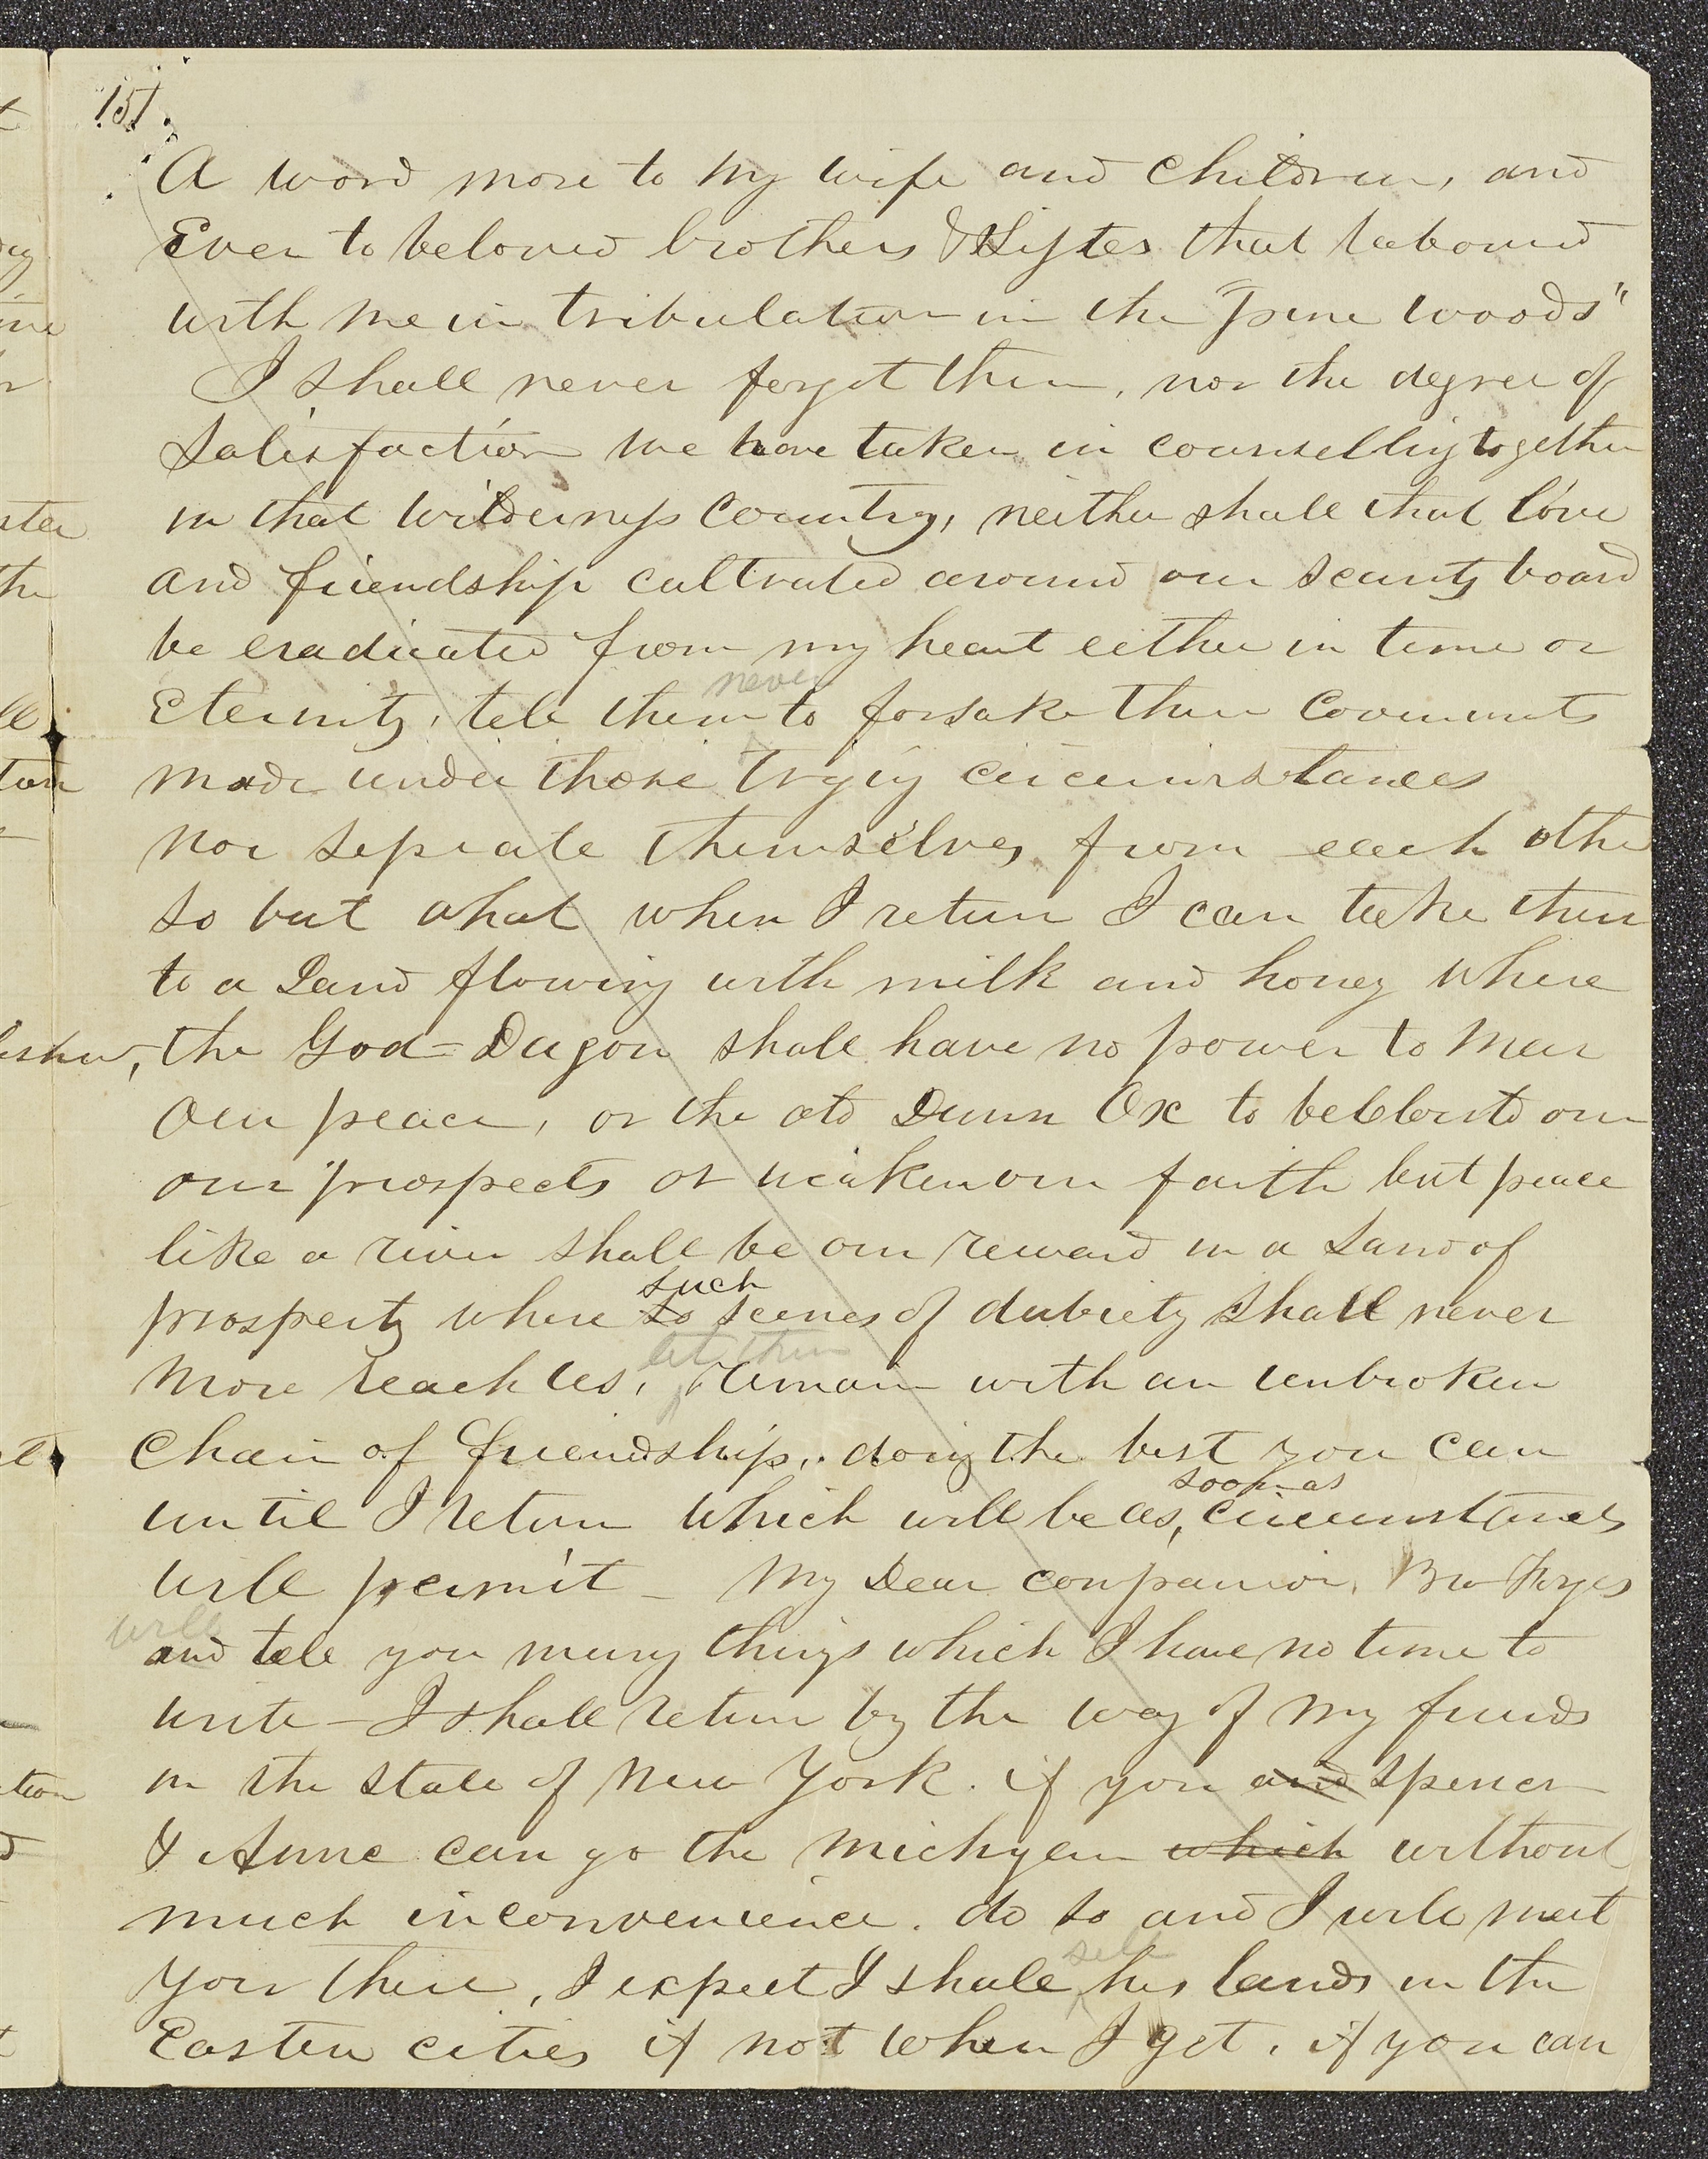 151.
A word more to my wife and children, and
Even to beloved brothers & Sisters that labored
with me in tribulation in the "pine woods"
I shall never forget them, nor the degree of
Satisfaction we have taken in counselling together
in that wilderness Country, neither shall that love
and friendship cultivated around our scanty board
be eradicated from my heart either in time or
never
Eternity, tell them to forsake their Covenants
made under those trying circumstances
nor seprate themselves from each other
so but what when I return I can take them
to a Land flowing with milk and honey where
the God=Dagon shall have no power to mar
Our peace, or the old Dunn Ox to
our prospects or weaken our faith but peace
like a river shall be our reward in a Land of
such
prosperity where so scenes of dubiety shall never
let them
more reach us, remain with an unbroken
Chain of friendship, doing the best you can
soon as
until I return which will be as, circumstances
will permit – My Dear companion, Bro
will
and tell you many things which I have no time to
write – I shall return by the way of my friends
in the state of New York. if you and Spencer
& Anne can go the Michigan which without
much inconvenience. do so and I will meet
sell
you there, I expect I shall his lands in the
Eastern cities if not when I get. if you can
ster
the
tion